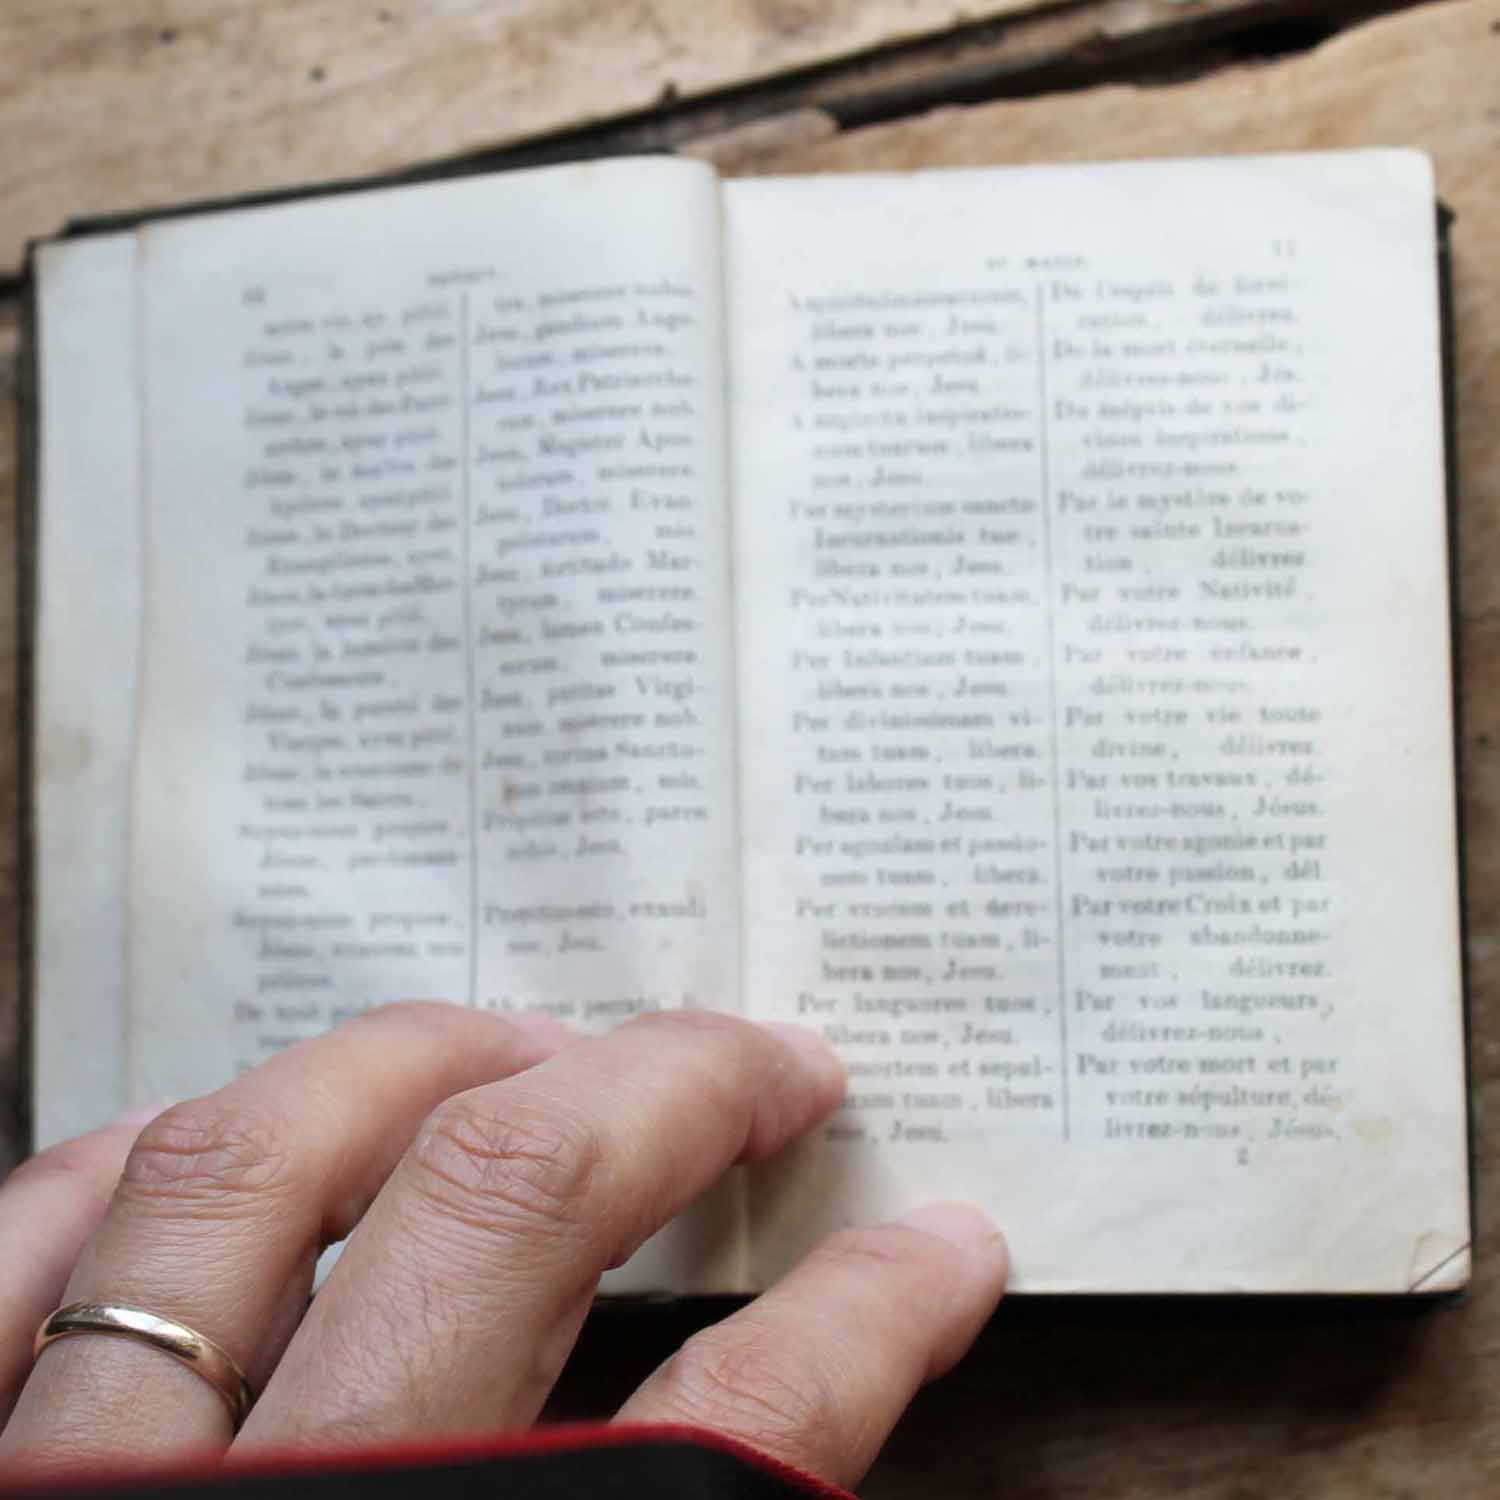 notre vie, ay. pitié.
Jésus, la joie des
Anges, ayez pitié.
Jésus, le roi des Patri-
arches, ayez pitié.
Jésus, le maître des
Apôtres, ayez pitié.
Jésus, le Docteur des
Évangélistes, ayez.
Jésus, la force des Mar-
tyrs, ayez pitié.
Jésus, la lumière des
Confesseurs,
Jésus, la pureté des
Vierges, ayez pitié.
Jésus, la couronne de
tous les Saints,
Soyez-nous propice,
Jésus, pardonnez-
nous.
Soyez-nous propice,
Jésus, exaucez nos
prières.
De tout
tra, miserere nobis.
Jesu, gaudium Ange-
lorum, miserere.
Jesu, Rex Patriarcha-
rum, miserere nob.
Jesu, Magister Apos-
tolorum, miserere.
Jesu, Doctor Evan-
gelistarum, mis.
Jesu, fortitudo Mar-
tyrum, miserere.
Jesu, lumen Confes-
sorum, miserere
Jesu, puritas Virgi-
num, miserere nob.
Jesu, corona Sancto-
rum omnium, mis.
Propitius esto, parce
nobis, Jesu.
Propitius esto, exaudi
nos, Jesu.
Ab omni peccato, li-
DU MATIN.
A spiritu fornicationis,
libera nos, Jesu.
A morte perpetuâ, li-
bera nos, Jesu.
A neglectu inspiratio-
num tuarum, libera
nos, Jesu.
Per mysterium sanctæ
Incarnationis tuæ,
libera nos, Jesu.
Per Nativitatem tuam,
libera nos, Jesu.
Per Infantiam tuam,
libera nos, Jesu.
Per divinissimam vi-
tam tuam, libera.
Per labores tuos, li-
bera nos, Jesu.
Per agoniam et passio-
nem tuam, libera.
Per crucem et dere-
lictionem tuam, li-
bera nos, Jesu.
Per languores tuos,
libera nos, Jesu.
mortem et sepul-
turam tuam, libera
nos, Jesu.
De l'esprit de forni-
cation, délivrez.
De la mort éternelle,
délivrez-nous, Jés.
Du mépris de vos di-
vines inspirations,
délivrez-nous.
Par le mystère de vo-
tre sainte Incarna-
tion, délivrez.
Par votre Nativité,
délivrez-nous.
Par votre enfance,
délivrez-nous.
Par votre vie toute
divine, délivrez.
Par vos travaux, dé-
livrez-nous, Jésus.
Par votre agonie et par
votre passion, dél.
Par votre Croix et par
votre abandonne-
ment, délivrez.
Par vos langueurs,
délivrez-nous,
Par votre mort et par
votre sépulture, dé-
livrez-nous, Jésus.
2